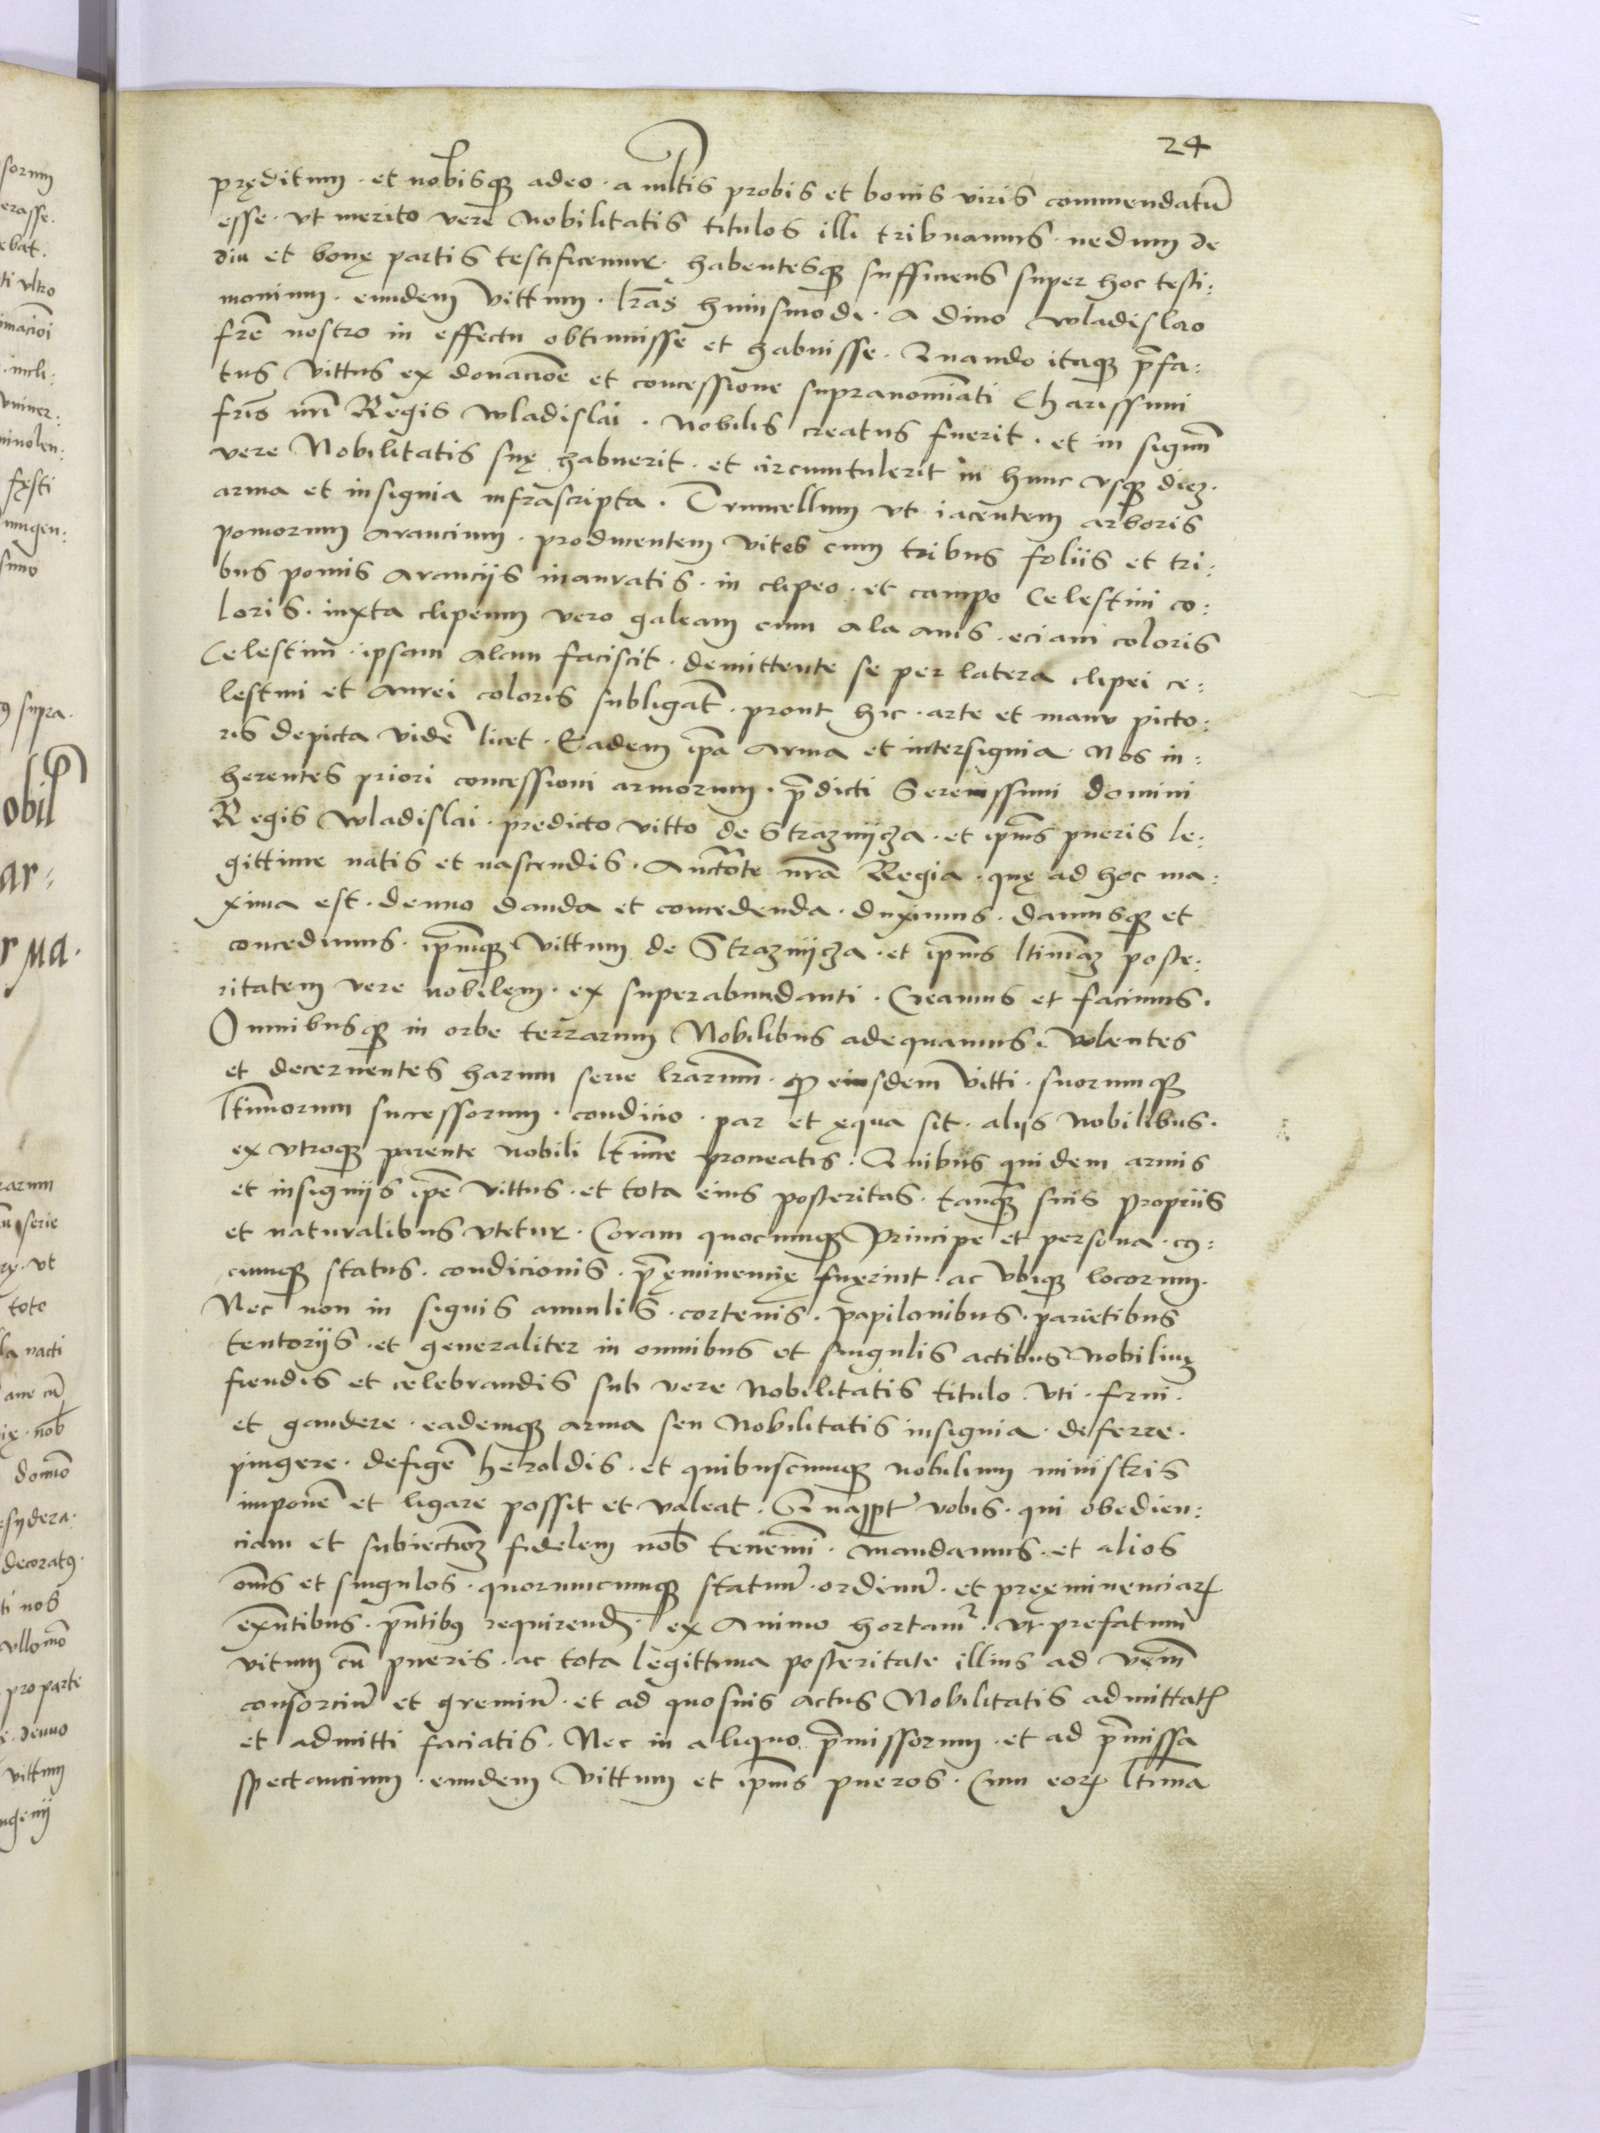 24
pręditum · et nobisq̃ adeo · a mltis probis et bonis viris commendatū
esse · vt merito vere Nobilitatis titulos illi tribuamus · nedum de
diu et bonę partis testificemur · habentesq̃ sufficiens super hoc testi:
monium · eundem Vittum · lrãs huiusmodi · a diuo Wladislao
frẽ nostro in effectu obtinuisse et habuisse · Quando itaq̃ p̃fa:
tus Vittus ex donacioẽ et concessione supranomiati Charissimi
fris nrĩ Regis Wladislai · Nobilis creatus fuerit · et in signũ
vere Nobilitatis suę habuerit · et circumtulerit in hunc vsq̃ diez ·
arma et insignia infrascripta · Trunellum vt iacentem arboris
pomorum arancium · producentem vites cum tribus foliis et tri:
bus pomis aranciis inauratis · in clipeo · et campo Celestini co:
loris · iuxta clipeum vero galeam cum ala auis · eciam coloris
Celestini · ipsam alam faciscit · demittente se per latera clipei ce:
lestini et aurei coloris subligat̃ · prout hic · arte et manu picto:
ris depicta vidẽ licet · Eadem ip̃a arma et intersignia · Nos in:
herentes priori concessioni armorum · p̃dicti Serenissimi domini
Regis Wladislai · predicto Vitto de Straznijcza · et ip̃ius pueris le:
gittime natis et nascendis · Auctõte nrã Regia · quę ad hoc ma:
xima est · denuo danda et concedenda · duximus · damusq̃ et
concedimus · ip̃mq̃ Vittum de Straznijcza · et ip̃ius ltimaz̃ poste:
ritatem vere nobilem · ex superabundanti · Creamus et facimus ·
Omnibusq̃ in orbe terrarum Nobilibus adequamus · Volentes
et decernentes harum serie lrarum̃ · q̃ eiusdem Vitti · suorumq̃
ltimorum successorum · condicio · par et ęqua sit · aliis Nobilibus ·
ex vtroq̃ parente nobili ltime procreatis · Quibus quidem armis
et insignijs ip̃e Vittus · et tota eius posteritas · tanq̃ suis Propriis
et naturalibus vtetur · Coram quocumq̃ Principe et persona · cu:
cumq̃ status · condicionis · p̃ęminencię fuęrint · ac vbiq̃ locorum ·
Nec non in signis anulis · cortenis · papilonibus · parietibus
tentorijs · et generaliter in omnibus et singulis actibus Nobiliuz
fiendis et celebrandis sub vere Nobilitatis titulo · vti · frui ·
et gaudere · eademq̃ arma seu Nobilitatis insignia · deferre ·
pingere · defigẽ heroldis · et quibuscumq̃ nobilium ministris
imponẽ et ligare possit et valeat · Quapp̃t vobis · qui obedien:
ciam et subiectioz̃ fidelem nob̃ tenemĩ · mandamus · et alios
om̃s et singulos · quorumcumq̃ statuũ · ordinũ · et pręęminenciarꝝ
ex̃ntibus · p̃ntibꝰ requirend̃ · ex Animo hortamʳ · vt prefatum
vitum cũ pueris · ac tota legittima posteritate illius ad verũ
consorciũ et gremiũ · et ad quosuis actus Nobilitatis admittatꝭ
et admitti faciatis · Nec in aliquo p̃missorum · et ad p̃missa
spectancium · eundem Vittum et ip̃ius pueros · Cum eorꝝ ltima